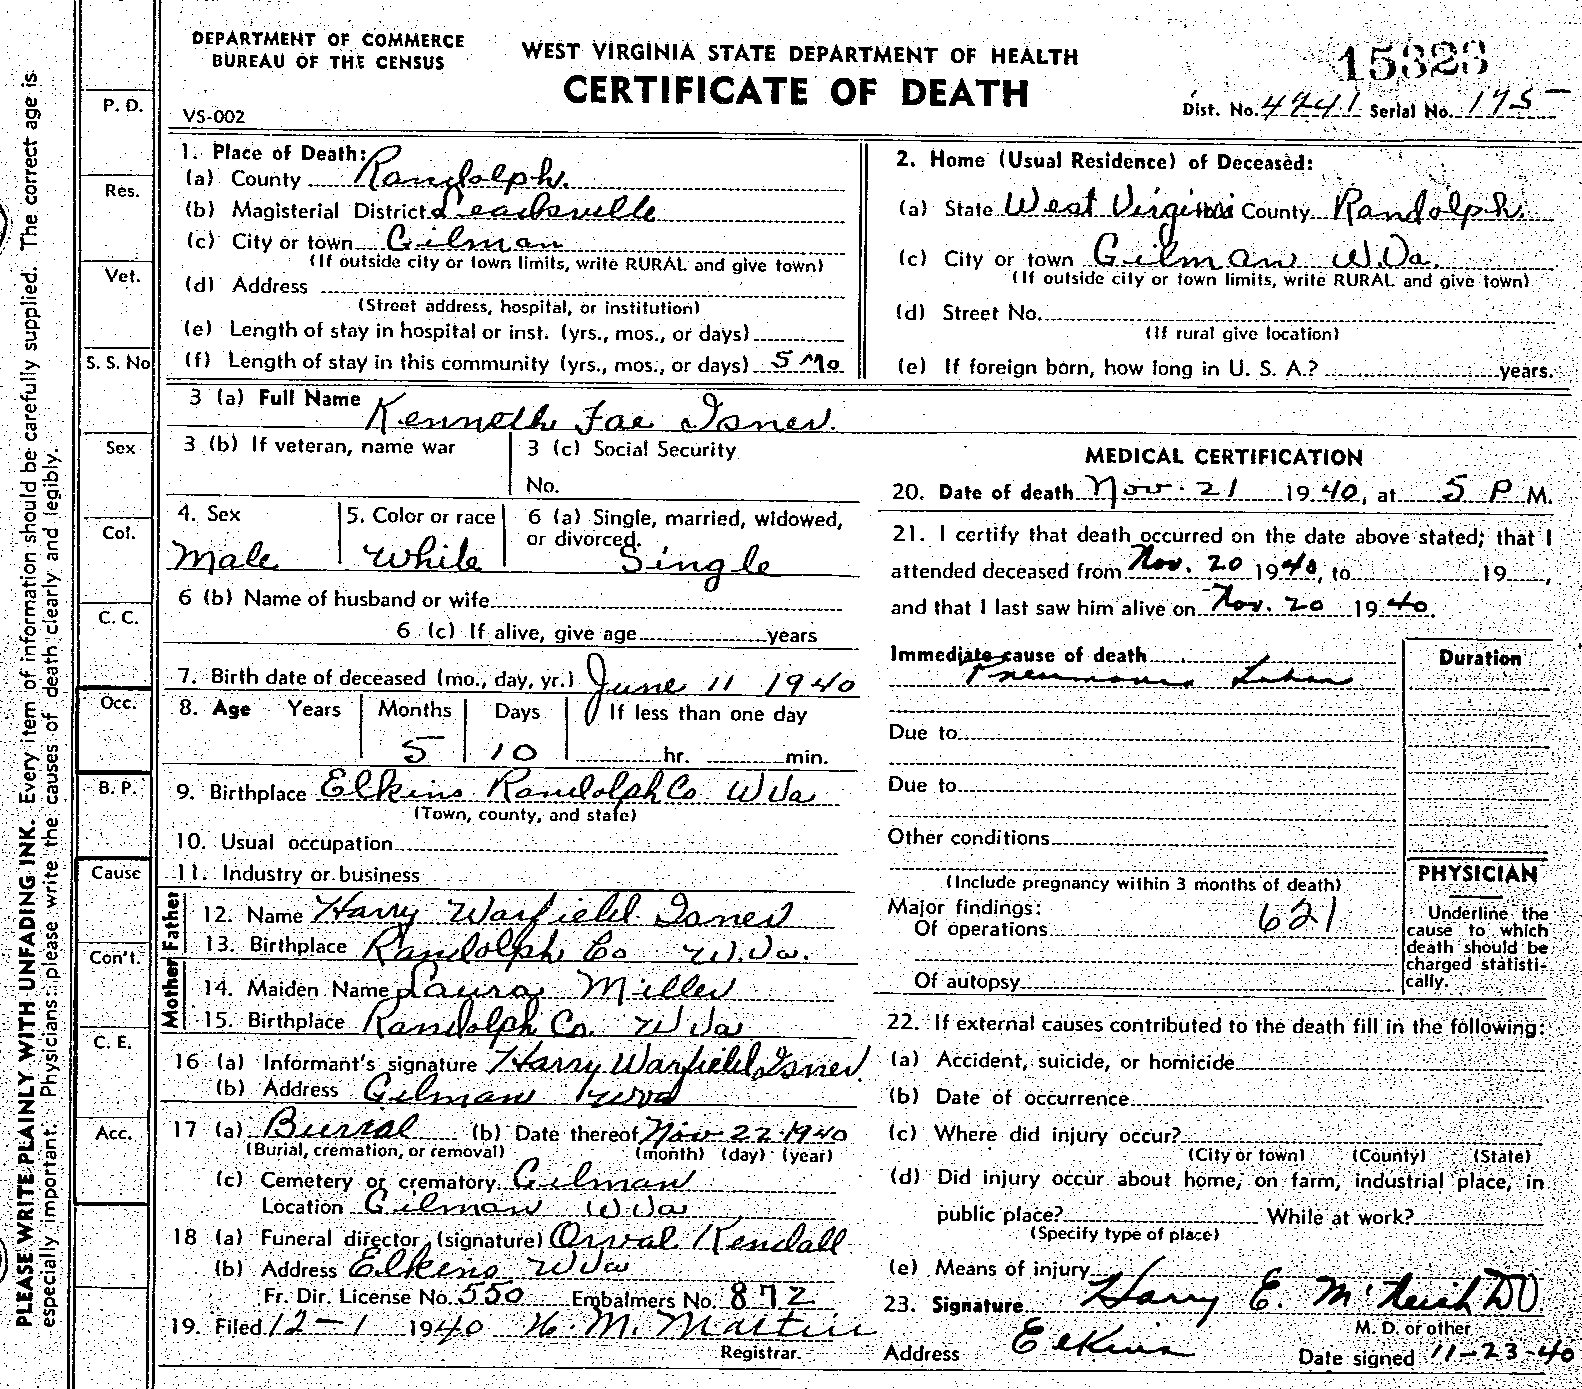 DEPARTMENT OF COMMERCE
BUREAU OF THE CENSUS
VS-002
WEST VIRGINIA STATE DEPARTMENT OF HEALTH
CERTIFICATE OF DEATH
15323
Dist. No. 4241 Serial No. 175
PLEASE WRITE PLAINLY WITH UNFADING INK. Every item of information should be carefully supplied. The correct age is
especially important. Physicians: please write the causes of death clearly and legibly.
P. D.
Res.
Vet.
S. S. No
Sex
Col.
C. C.
Occ.
B. P.
Cause
Con't.
C. E.
Acc.
1. Place of Death:
(a) County Randolph.
(b) Magisterial District Leadsville
(c) City or town Gilman
(If outside city or town limits, write RURAL and give town)
(d) Address
(Street address, hospital, or institution)
(e) Length of stay in hospital or inst. (yrs., mos., or days)
(f) Length of stay in this community (yrs., mos., or days) 5 Mo
2. Home (Usual Residence) of Deceased:
(a) State West Virginia County Randolph.
(c) City or town Gilman W.Va.
(If outside city or town limits, write RURAL and give town)
(d) Street No.
(If rural give location)
(e) If foreign born, how long in U. S. A.? years.
3 (a) Full Name Kenneth Fae Isner.
3 (b) If veteran, name war
3 (c) Social Security
No.
4. Sex
Male
5. Color or race
White
6 (a) Single, married, widowed,
or divorced.
Single
6 (b) Name of husband or wife
6 (c) If alive, give age years
7. Birth date of deceased (mo., day, yr.) June 11 1940
8. Age Years Months Days If less than one day
5 10 hr. min.
9. Birthplace Elkins Randolph Co W Va
(Town, county, and state)
10. Usual occupation
11. Industry or business
Father
12. Name Harry Warfield Isner
13. Birthplace Randolph Co W.Va.
Mother
14. Maiden Name Laura Miller
15. Birthplace Randolph Co. W Va
16 (a) Informant's signature Harry Warfield Isner
(b) Address Gilman W Va
17 (a) Burial (b) Date thereof Nov 22-1940
(Burial, cremation, or removal) (month) (day) (year)
(c) Cemetery or crematory Gilman
Location Gilman W Va
18 (a) Funeral director (signature) Orval Kendall
(b) Address Elkins W Va
Fr. Dir. License No. 550 Embalmers No. 872
19. Filed 12-1 1940 H. M. Martin
Registrar.
MEDICAL CERTIFICATION
20. Date of death Nov. 21 1940, at 5 P M.
21. I certify that death occurred on the date above stated; that I
attended deceased from Nov. 20 1940, to 19 ,
and that I last saw him alive on Nov. 20 1940.
Immediate cause of death
Pneumonia Lobar
Due to
Due to
Other conditions
(Include pregnancy within 3 months of death)
Major findings:
Of operations
621
Of autopsy
Duration
PHYSICIAN
Underline the
cause to which
death should be
charged statisti-
cally.
22. If external causes contributed to the death fill in the following:
(a) Accident, suicide, or homicide
(b) Date of occurrence
(c) Where did injury occur?
(City or town) (County) (State)
(d) Did injury occur about home, on farm, industrial place, in
public place? While at work?
(Specify type of place)
(e) Means of injury
23. Signature Harry E. DO.
M. D. or other
Address Elkins
Date signed 11-23-40